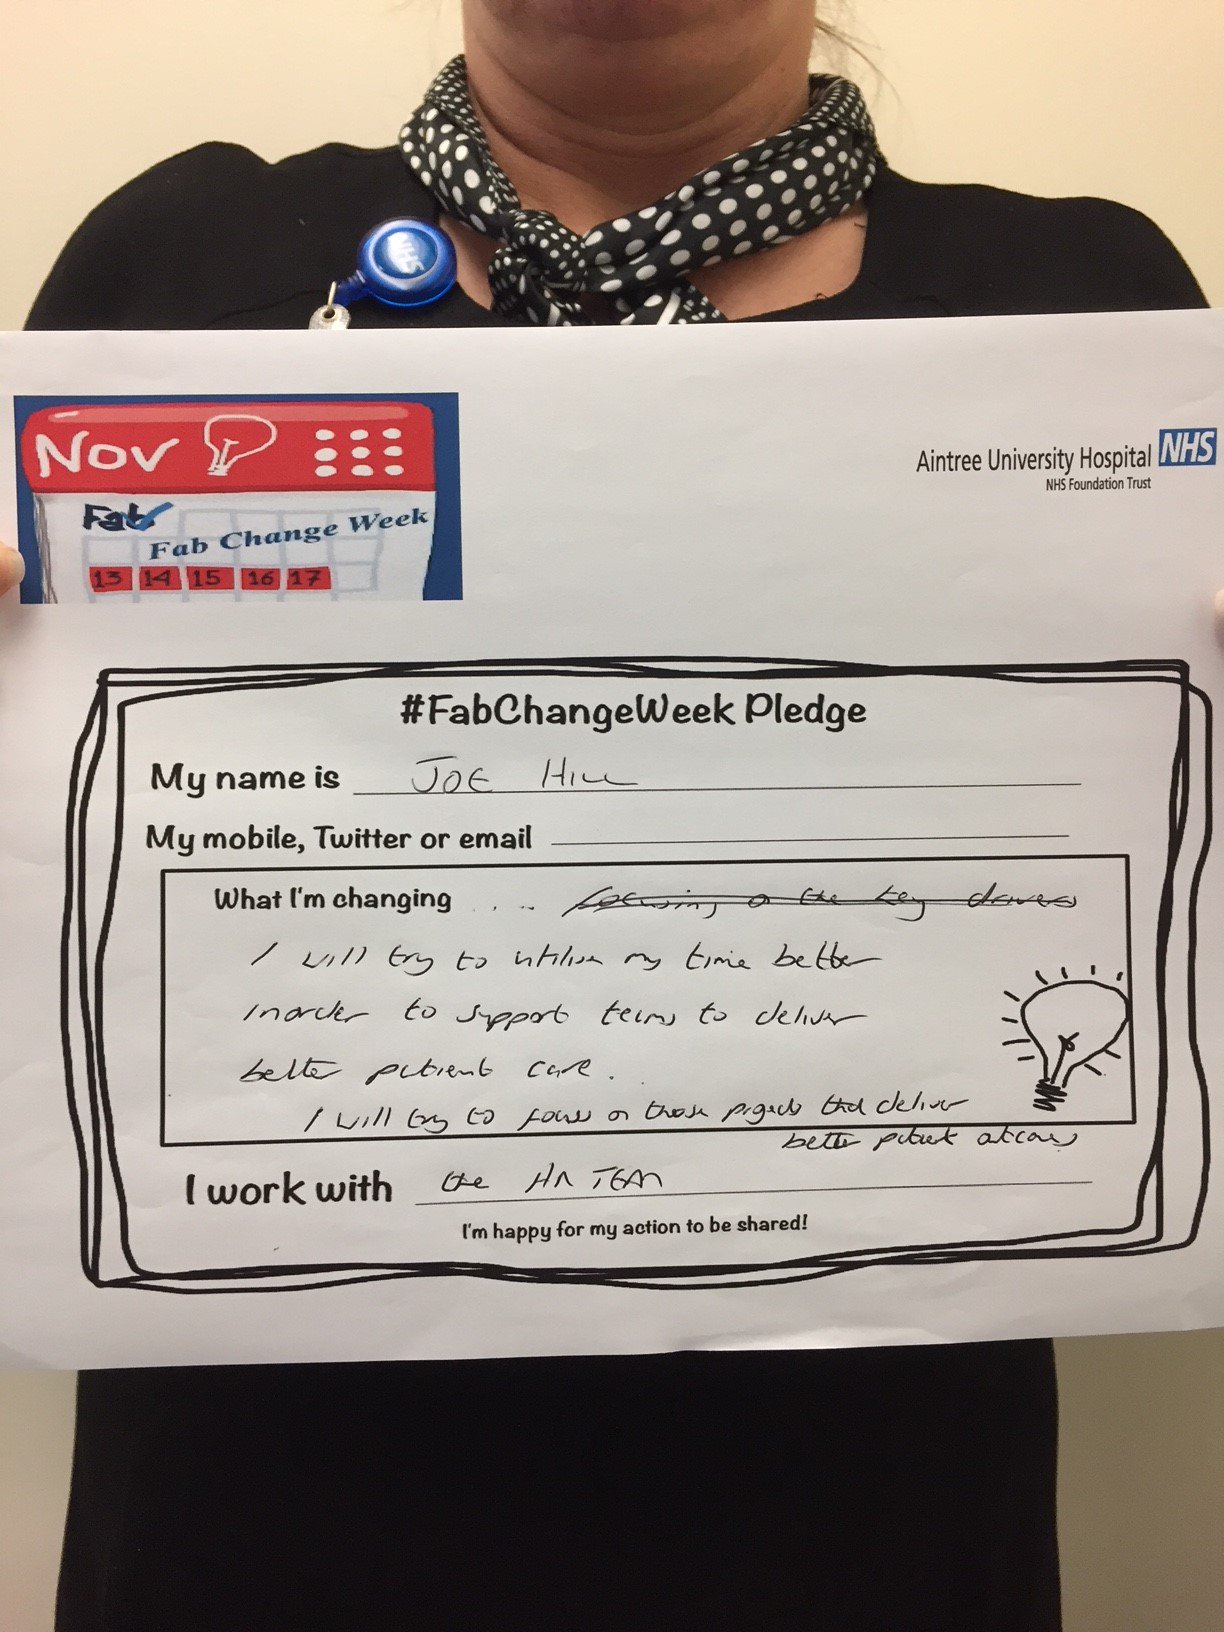 NHS
Nov
Aintree University Hospital NHS
NHS Foundation Trust
Fab
Fab Change Week
13 14 15 16 17
#FabChangeWeek Pledge
My name is JOE HILL
My mobile, Twitter or email
What I'm changing .... focusing o the key drivers
I will try to utilise my time better
inorder to support teams to deliver
better patient care.
I will try to focus on those projects that deliver
better patient outcomes
I work with the HR TEAM
I'm happy for my action to be shared!